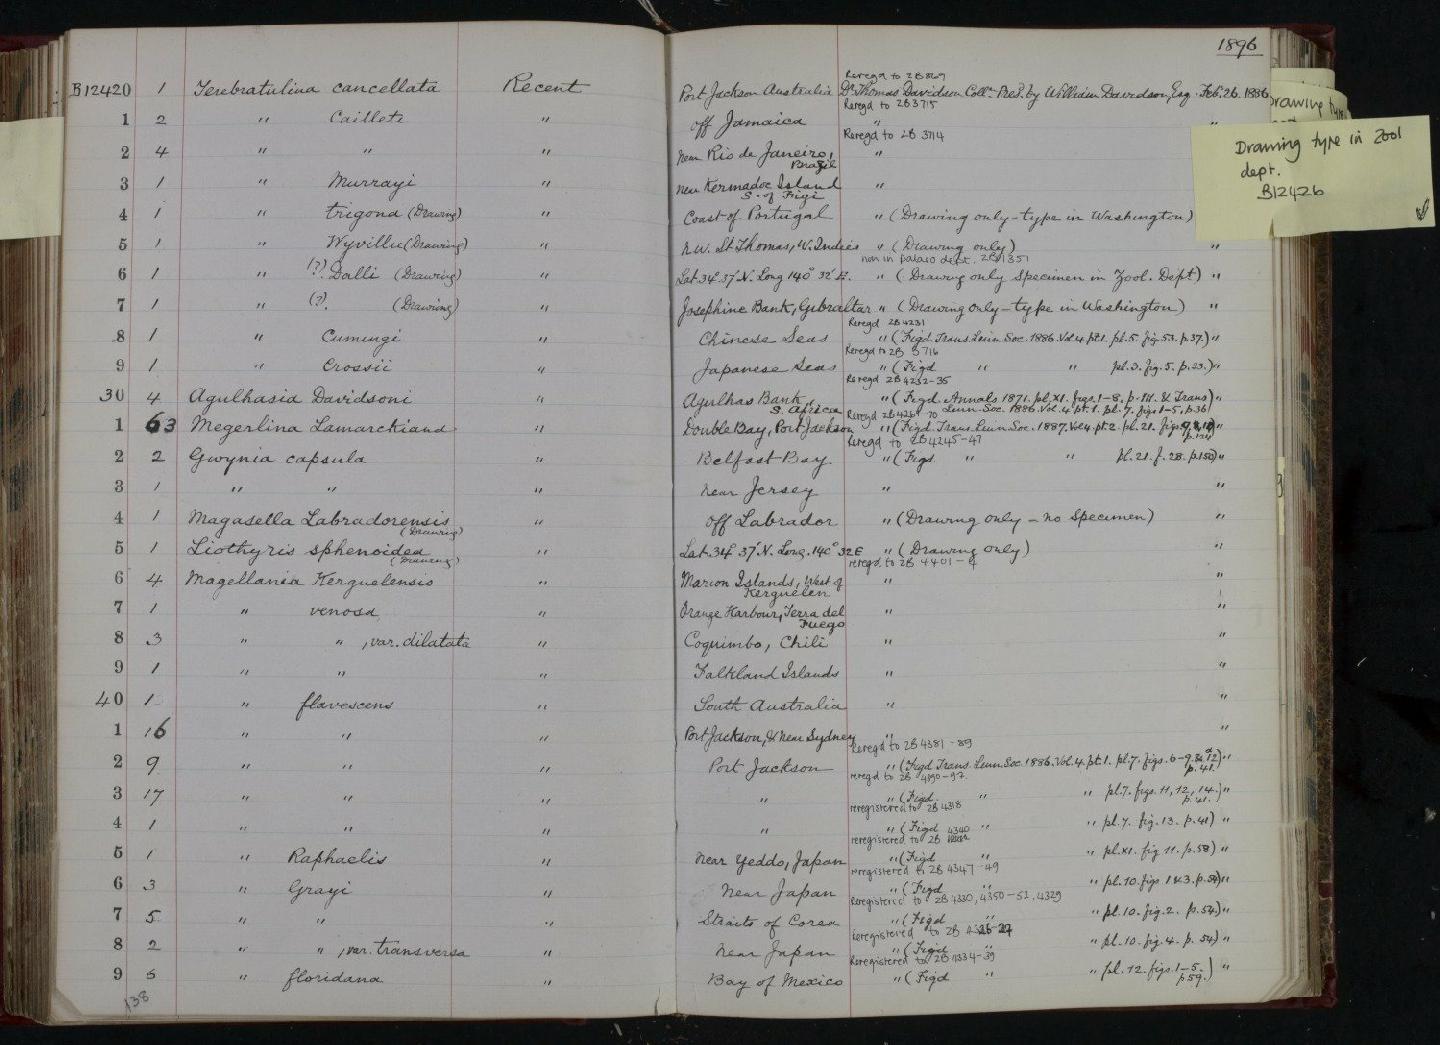 1896
Reregd to ZB 869
B12420 1 Terebratulina cancellata Recent Port Jackson Australia Dr Thomas Davidson Colln Pres. by William Davidson, Esq. Feb. 26. 1886
Reregd to ZB 3715
1 2 " Cailleti " off Jamaica "
Reregd to ZB 3714
2 4 " " " near Rio de Janeiro, Brazil "
3 1 " Murrayi " near Kermadoc Island S. of Figi "
4 1 " trigona (Drawing) " Coast of Portugal " (Drawing only - type in Washington)
5 1 " Wyvillii (Drawing) " N.W. St Thomas, W. Indies " (Drawing only) "
now in Palaeo dept. ZB 1351
6 1 " (?) Dalli (Drawing) " Lat. 34° 37' N. Long 140° 32' E. " (Drawing only specimen in Zool. Dept) "
7 1 " (?) (Drawing) " Josephine Bank, Gibraltar " (Drawing only - type in Washington) "
Reregd ZB 4231
8 1 " Cumingi " Chinese Seas " (Figd. Trans. Linn. Soc. 1886. Vol. 4. pt. 1. pl. 5. fig. 53. p. 37.) "
Reregd to ZB 3716
9 1 " Crossii " Japanese Seas " (Figd " " pl. 3. fig. 5. p. 23.) "
Reregd ZB 4232-35
30 4 Agulhasia Davidsoni " Agulhas Bank, S. Africa " (Figd. Annals 1871. pl. XI. figs. 1-8. p. 111. & Trans) "
Linn. Soc. 1886. Vol. 4. pt. 1. pl. 7. figs 1-5, p. 36)
1 63 Megerlina Lamarckiana " Double Bay, Port Jackson " (Figd. Trans. Linn. Soc. 1887. Vol. 4. pt. 2. pl. 21. figs.
Reregd to ZB 4245-47
2 2 Gwynia capsula " Belfast Bay " (Figs. " " pl. 21. f. 28. p. 150) "
3 1 " " " near Jersey " "
4 1 Magasella Labradorensis (Drawing) " off Labrador " (Drawing only - no Specimen) "
5 1 Liothyris sphenoidea (Drawing) " Lat. 34° 37' N. Long. 140° 32 E " (Drawing only) "
6 4 Magellania Kerguelensis " Marion Islands, West of Kerguelen " "
7 1 " venosa " Orange Harbour, Terra del Fuego " "
8 3 " " , var. dilatata " Coquimbo, Chili " "
9 1 " " " Falkland Islands " "
40 1 " flavescens " South Australia " "
1 16 " " " Port Jackson, & near Sydney " "
Reregd to ZB 4381-89
2 9 " " " Port Jackson " (Figd. Trans. Linn. Soc. 1886. Vol. 4. pt. 1. pl. 7. figs. 6-9. & 12) " p. 41.
reregd to ZB 4390-97
3 17 " " " " " (Figd. " " pl. 7. figs. 11, 12, 14. p. 41.) "
reregistered to ZB 4318
4 1 " " " " " (Figd " " pl. 7. fig. 13. p. 41) "
reregistered to ZB 4340
5 1 " Raphaelis " near Yeddo, Japan " (Figd " " pl. XI. fig 11. p. 58) "
reregistered to ZB 4347-49
6 3 " Grayi " near Japan " (Figd " " pl. 10. figs 1 & 3. p. 54) "
reregistered to ZB 4330, 4350-52, 4329
7 5 " " " Straits of Corea " (Figd " " pl. 10. fig. 2. p. 54.) "
reregistered to ZB
8 2 " " , var. transversa " near Japan " (Figd " " pl. 10. fig. 4. p. 54) "
Reregistered to ZB
9 5 " floridana " Bay of Mexico " (Figd " " pl. 12. figs. 1-5. p. 59.) "
138
Drawing type in Zool
dept.
B12426